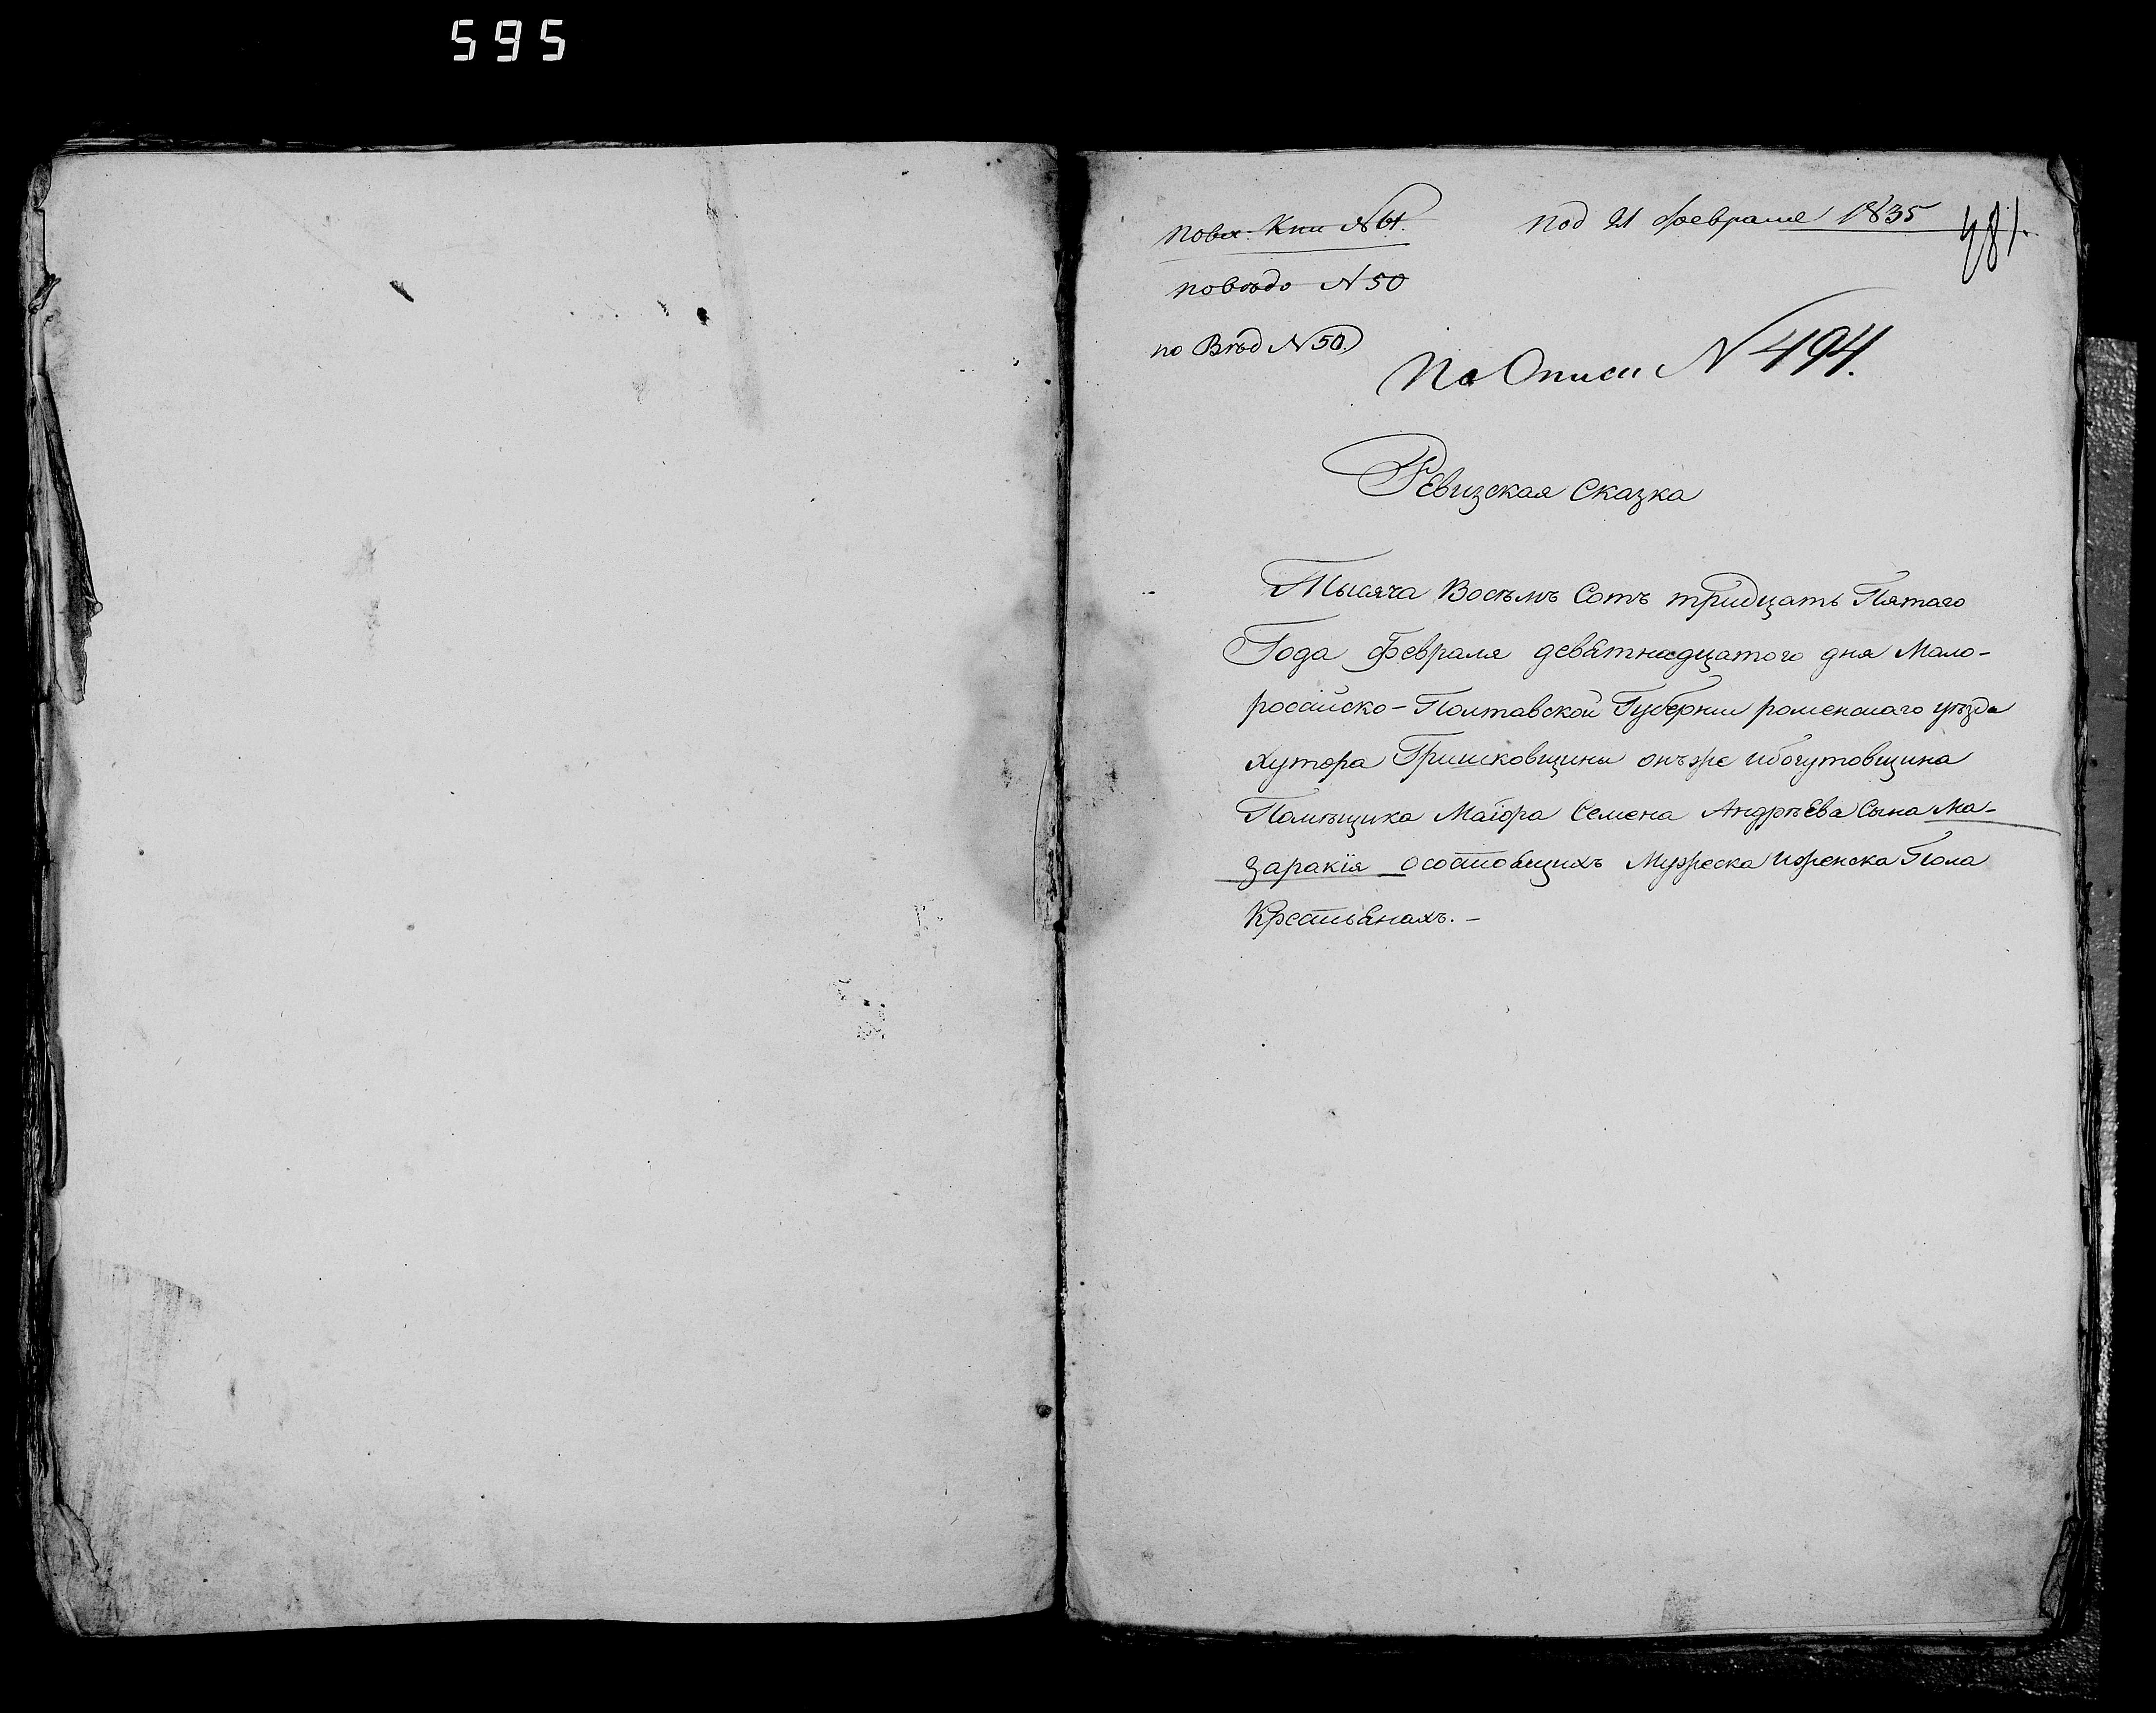 595
по вх. Кни №61.
Под 21 февраля 1835
481.
по вѣдо №50
по Вѣд №50
По Описи №494.
Ревизская Сказка
Тысяча Восъмъ Сотъ тридцать Пятаго
Года Февраля девятнадцатого дня Мало-
росийско-Полтавской Губернии роменскаго уѣзда
хутора Гришковщины онъже ибогутовщина
Помѣщика Маіора Семена Андрѣева Сына Ма-
заракія осостоящихъ Мужеска иженска Пола
Крестьянахъ.-